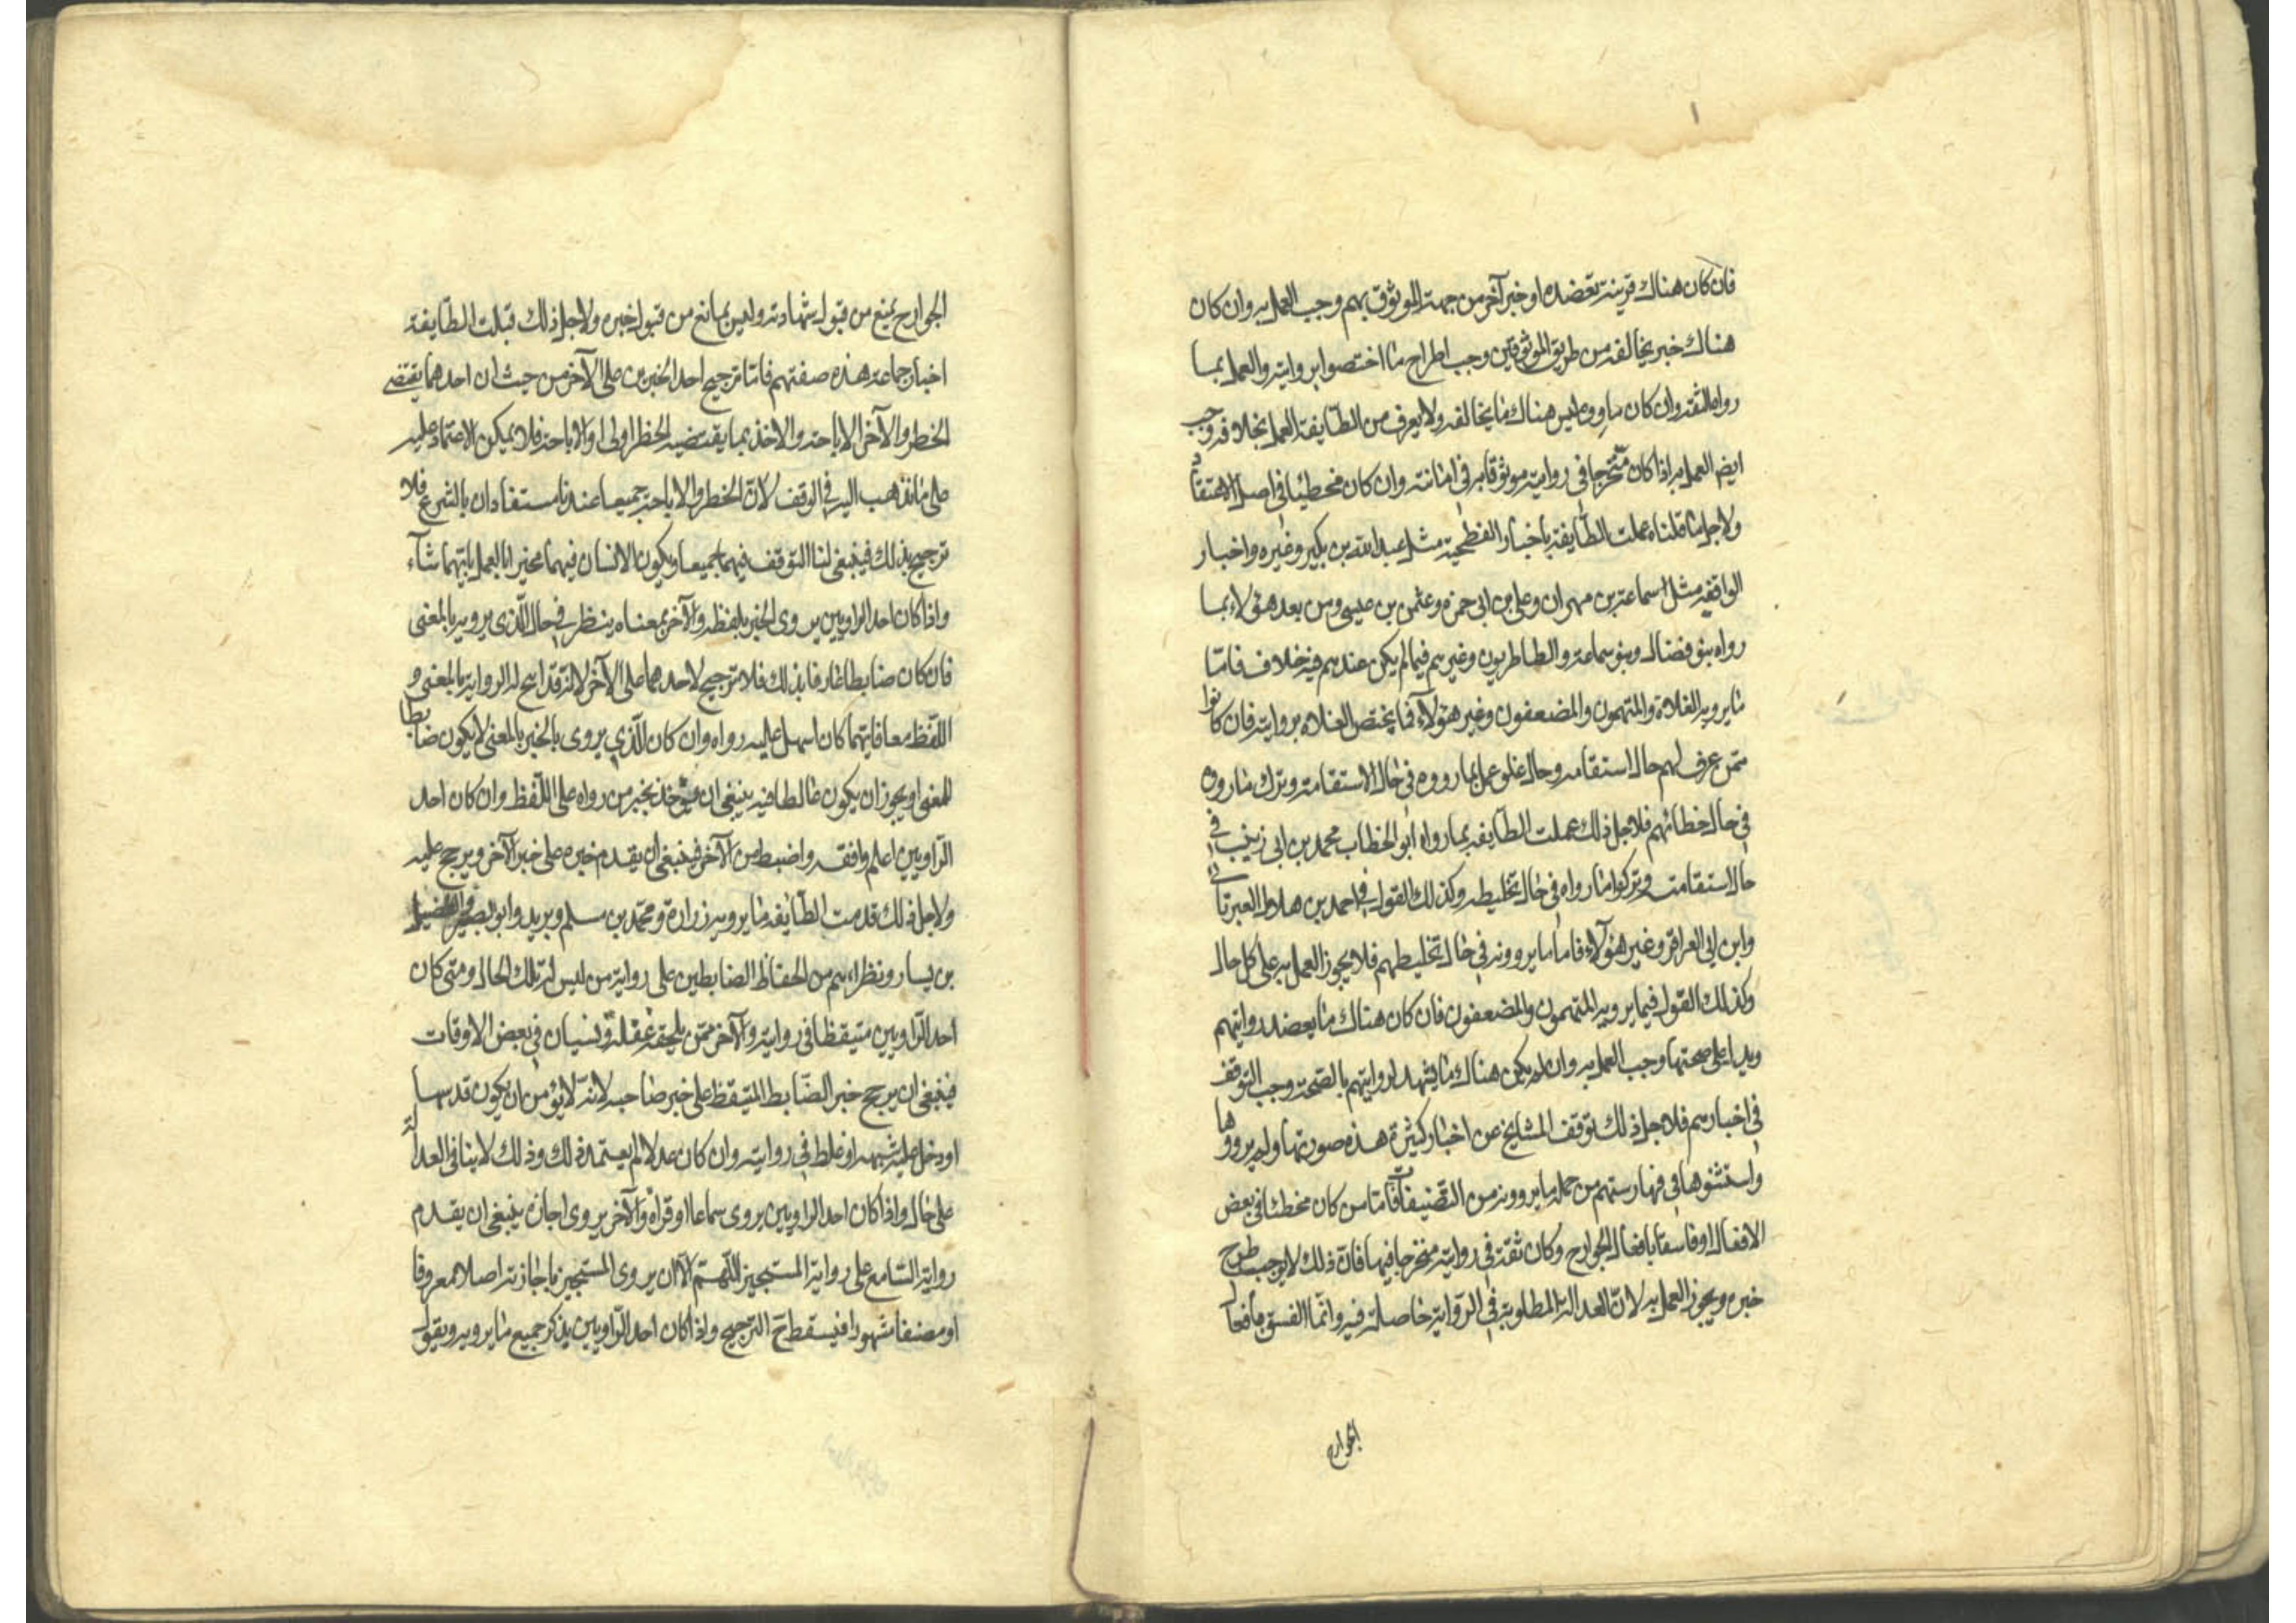 فان كان هناك قرينة تعضده او خبر آخر من جهة الموثوق بهم وجب العمل به وان كان
هناك خبر يخالفه من طريق الموثوقين وجب اطراح ما اختصوا بروايته والعمل بما
رواه الثقة وان كان ما رووه ليس هناك ما يخالفه ولا يعرف من الطايفة العمل بخلافه وجب
ايضا العمل به اذا كان متحرجا فى روايته موثوقا به فى امانته وان كان مخطئا فى اصل الاعتقاد
ولاجل ما قلناه عملت الطايفة باخبار الفطحية مثل عبدالله بن بكير وغيره واخبار
الواقفيه مثل سماعة بن مهران وعلى بن ابى حمزه وعثمن بن عيسى ومن بعد هؤلاء بما
رواه بنو فضال وبنو سماعة والطاطريون وغيرهم فيما لم يكن عندهم فيه خلاف فامّا
ما يرويه الغلاة والمتهمون والمضعفون وغير هؤلآء فما يختص الغلاه بروايته فان كانوا
ممّن عرف لهم حال استقامه وحال غلو عمل بما رووه فى حال الاستقامة وترك ما رووه
فى حال خطائهم فلاجل ذلك عملت الطايفه بما رواه ابو الخطاب محمد بن ابى زينب فى
حال استقامته وتركوا ما رواه فى حال تخليطه وكذلك القول فى احمد بن هلال العبرتائى
وابن ابى العزاقر وغير هؤلآء فاما ما يروونه فى حال تخليطهم فلا يجوز العمل به على كل حال
وكذلك القول فيما يرويه المتهمون والمضعفون فان كان هناك ما يعضد روايتهم
ويدل على صحتها وجب العمل به وان لم يكن هناك ما يشهد لروايتهم بالصحة وجب التوقف
فى اخبارهم فلاجل ذلك توقف المشايخ عن اخبار كثيرة هذه صورتها ولم يرووها
واستثنوها فى فهارستهم من جمله ما يروونه من التّصنيفات فامّا من كان مخطئا فى بعض
الافعال او فاسقا بافعال الجوارح وكان ثقة فى روايته متحرجا فيها فانّ ذلك لا يوجب طرح
خبره ويجوز العمل به لانّ العدالة المطلوبة فى الرّواية حاصلة فيه وانّما الفسق بافعال
الجوارح
الجوارح يمنع من قبول شهادته وليس بمانع من قبول خبره ولاجل ذلك قبلت الطّايفة
اخبار جماعة هذه صفتهم فامّا ترجيح احد الخبرين على الآخر من حيث ان احدهما يقتضى
الخطر والآخر الاباحة والاخذ بما يقتضيه الحظر اولى او الاباحة فلا يمكن الاعتماد عليه
على ما نذهب اليه فى الوقف لانّ الخطر والاباحة جميعا عندنا مستفادان بالشرع فلا
ترجيح بذلك فينبغى لنا التوقف فيهما جميعا ويكون الانسان فيهما مخيرا بالعمل بايّهما شآء
واذا كان احد الراويين يروى الخبر بلفظه والآخر بمعناه ينظر فى حال الّذى يرويه بالمعنى
فان كان ضابطا عارفا بذلك فلا ترجيح لاحدهما على الآخر لانّه قد ابيح له الرواية بالمعنى و
اللّفظ معا فايهما كان اسهل عليه رواه وان كان الّذي يروى بالخبر بالمعنى لا يكون ضابطا
للمعنى او يجوز ان يكون غالطا فيه ينبغى ان يؤخذ بخبر من رواه على اللّفظ وان كان احد
الرّاويين اعلم وافقه واضبط من الآخر فينبغى ان يقدم خبره على خبر الآخر ويرجح عليه
ولاجل ذلك قدمت الطّايفه ما يرويه زرارة ومحمّد بن مسلم وبريد وابو بصير والفضيل
بن يسار ونظراءهم من الحفّاظ الضابطين على رواية من ليس له تلك الحال ومتى كان
احد الرّاويين متيقظا فى روايته والآخر ممّن يلحقه غفلة ونسيان فى بعض الاوقات
فينبغى ان يرجح خبر الضّابط المتيقظ على خبر صاحبه لانّه لا يؤمن ان يكون قد سها
او دخل عليه شبهه او غلط فى روايته وان كان عدلا لم يعتمد ذلك وذلك لا ينافى العدالة
على حال واذا كان احد الراويين يروى سماعا او قراة والآخر يروى اجازة ينبغى ان يقدم
رواية السّامع على رواية المستجيز اللّهمّ الّا ان يروى المستجيز باجازته اصلا معروفا
او مصنفا مشهورا فيسقط ح الترجيح واذا كان احد الرّاويين يذكر جميع ما يرويه ويقول